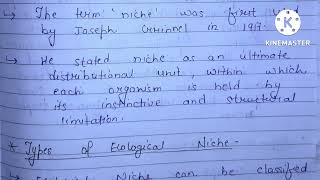 ↳ The term 'niche' was first used
by Joseph Grinnel in 1917.
KINEMASTER
↳ He stated niche as an ultimate
distributional unit, within which
each organism is held by
its instinctive and structural
limitation.
* Types of Ecological Niche -
Niche can be classified